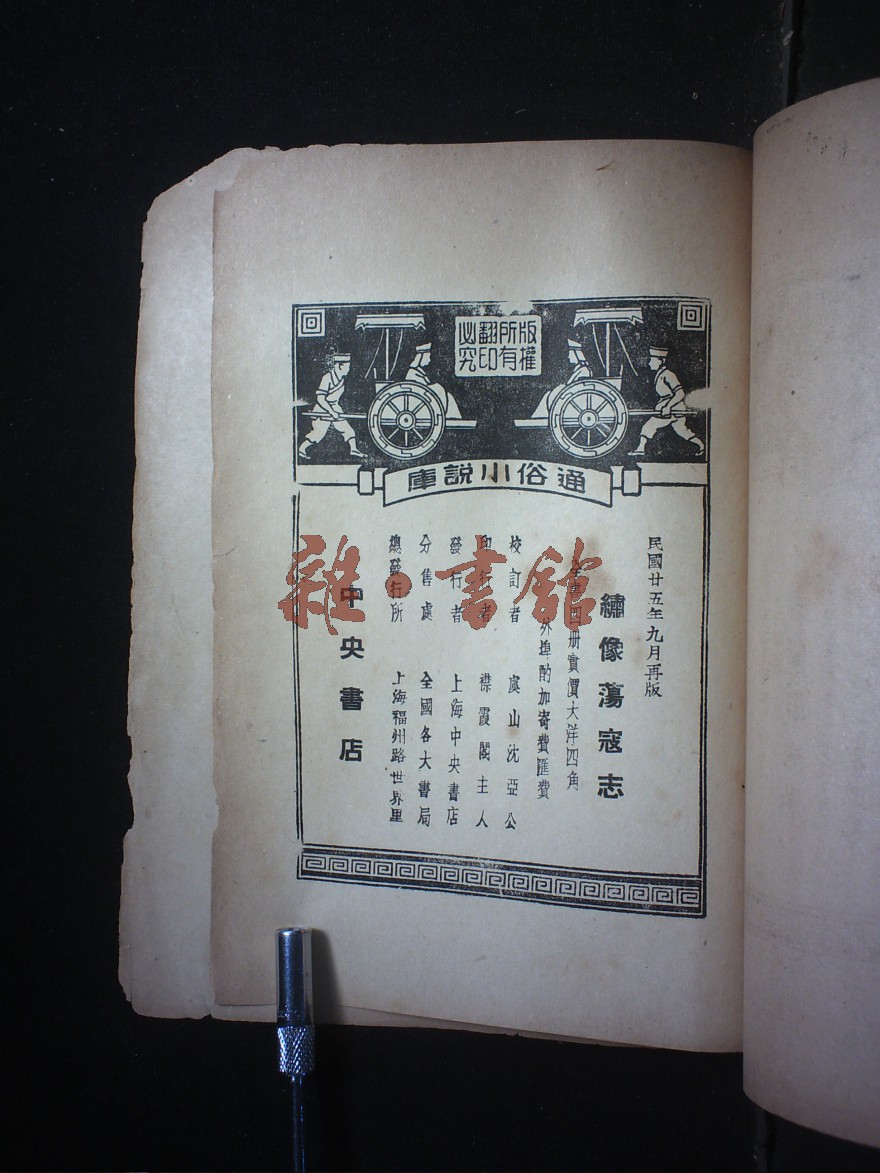 版權
所有
翻印
必究
通俗小說庫
民國廿五年九月再版
繡像蕩寇志
全書四册實價大洋四角
外埠酌加寄費匯費
校訂者 虞山沈亞公
印行者 襟霞閣主人
發行者 上海中央書店
分售處 全國各大書局
總發行所 上海福州路世界里
中央書店
雜·書館